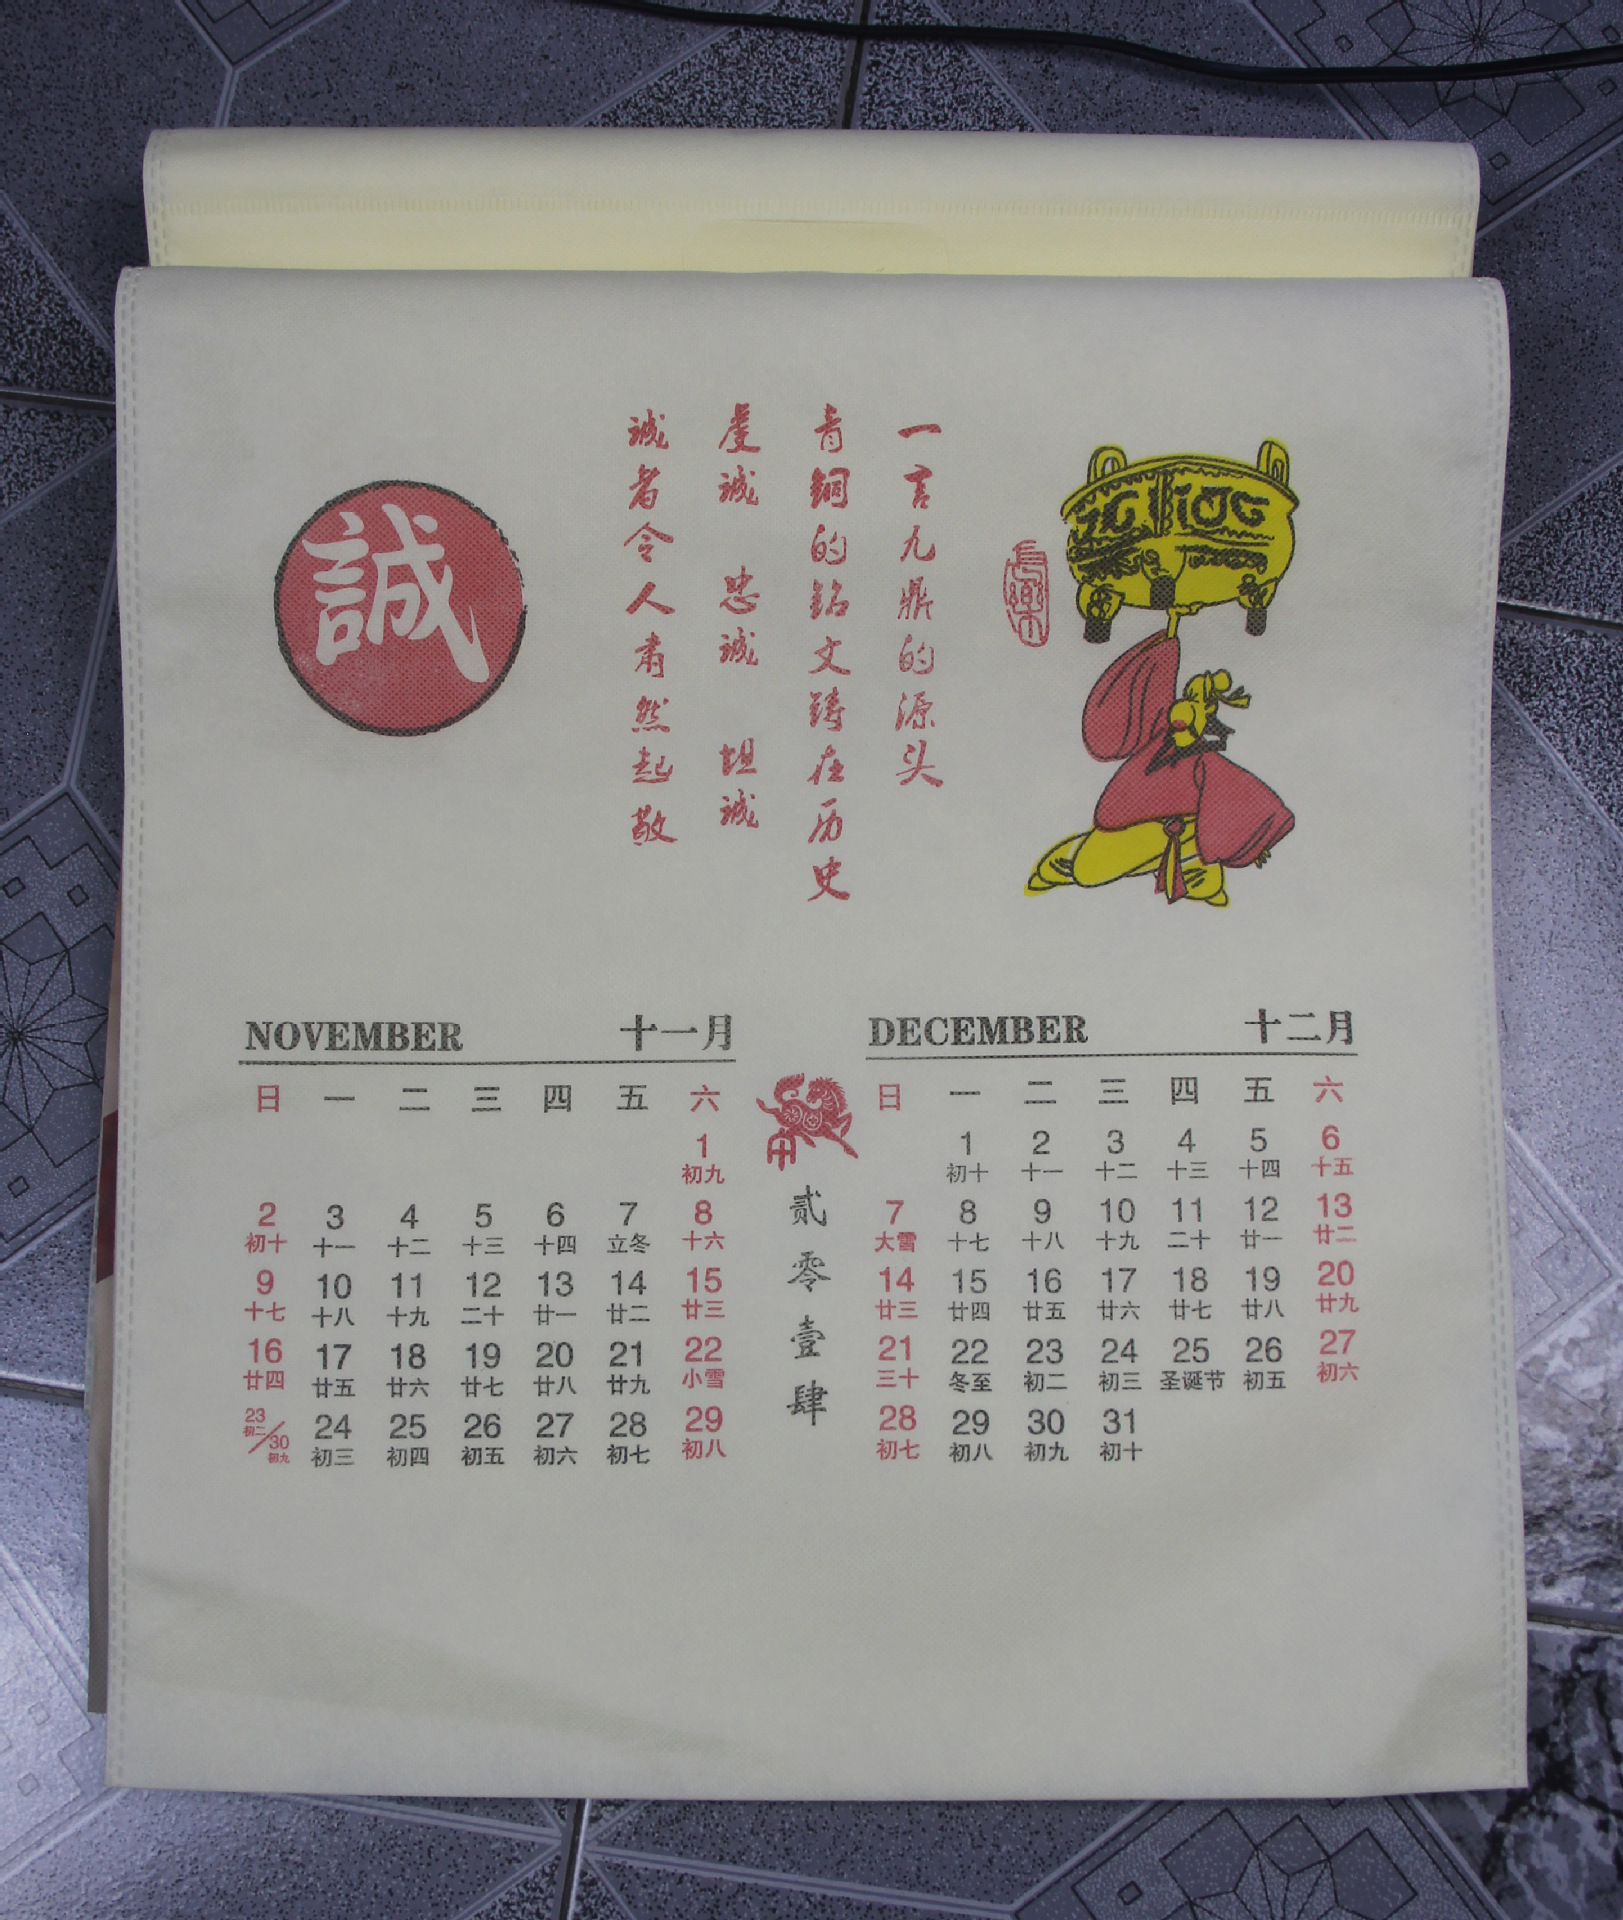 誠
一言九鼎的源头
青铜的铭文铸在历史
虔诚 忠诚 坦诚
诚者令人肃然起敬
長樂
NOVEMBER 十一月
日 一 二 三 四 五 六
1
初九
2 3 4 5 6 7 8
初十 十一 十二 十三 十四 立冬 十六
9 10 11 12 13 14 15
十七 十八 十九 二十 廿一 廿二 廿三
16 17 18 19 20 21 22
廿四 廿五 廿六 廿七 廿八 廿九 小雪
23/30 24 25 26 27 28 29
初二/初九 初三 初四 初五 初六 初七 初八
贰零壹肆
DECEMBER 十二月
日 一 二 三 四 五 六
1 2 3 4 5 6
初十 十一 十二 十三 十四 十五
7 8 9 10 11 12 13
大雪 十七 十八 十九 二十 廿一 廿二
14 15 16 17 18 19 20
廿三 廿四 廿五 廿六 廿七 廿八 廿九
21 22 23 24 25 26 27
三十 冬至 初二 初三 圣诞节 初五 初六
28 29 30 31
初七 初八 初九 初十